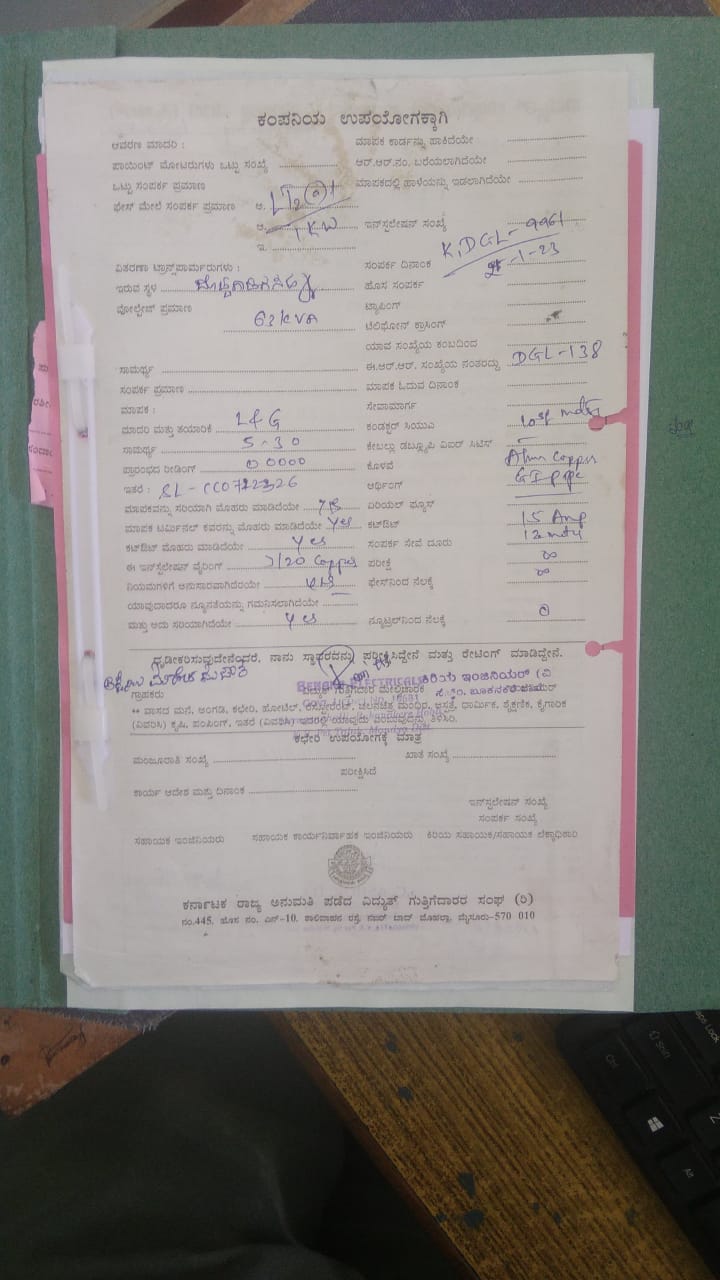 ಕಂಪನಿಯ ಉಪಯೋಗಕ್ಕಾಗಿ
ಆವರಣ ಮಾದರಿ : ಮಾಪಕ ಕಾರ್ಡನ್ನು ಹಾಕಿದೆಯೇ
ಪಾಯಿಂಟ್ ಮೋಟರುಗಳು ಒಟ್ಟು ಸಂಖ್ಯೆ ಆರ್.ಆರ್.ನಂ. ಬರೆಯಲಾಗಿದೆಯೇ
ಒಟ್ಟು ಸಂಪರ್ಕ ಪ್ರಮಾಣ ಮಾಪಕದಲ್ಲಿ ಹಾಳೆಯನ್ನು ಇಡಲಾಗಿದೆಯೇ
ಫೇಸ್ ಮೇಲೆ ಸಂಪರ್ಕ ಪ್ರಮಾಣ ಅ. LT2(a)1
ಆ. 1 KW ಇನ್‌ಸ್ಟಲೇಷನ್ ಸಂಖ್ಯೆ K.DGL-9961
ಇ.
ವಿತರಣಾ ಟ್ರಾನ್ಸ್‌ಫಾರ್ಮರುಗಳು : ಸಂಪರ್ಕ ದಿನಾಂಕ -1-23
ಇರುವ ಸ್ಥಳ ಹೊಸ ಸಂಪರ್ಕ
ವೋಲ್ಟೇಜ್ ಪ್ರಮಾಣ 63 KVA ಟ್ಯಾಪಿಂಗ್
ಟೆಲಿಫೋನ್ ಕ್ರಾಸಿಂಗ್
ಯಾವ ಸಂಖ್ಯೆಯ ಕಂಬದಿಂದ
ಸಾಮರ್ಥ್ಯ ಈ.ಆರ್.ಆರ್. ಸಂಖ್ಯೆಯ ನಂತರದ್ದು DGL-138
ಸಂಪರ್ಕ ಪ್ರಮಾಣ ಮಾಪಕ ಓದುವ ದಿನಾಂಕ
ಮಾಪಕ : ಸೇವಾಮಾರ್ಗ
ಮಾದರಿ ಮತ್ತು ತಯಾರಿಕೆ L&G ಕಂಡಕ್ಟರ್ ಸಿಯುಎ
ಸಾಮರ್ಥ್ಯ 5-30 ಕೇಬಲ್ಲು ಡಬ್ಲ್ಯೂಪಿ ವಿಐರ್ ಸಿಟಿಸ್
ಪ್ರಾರಂಭದ ರೀಡಿಂಗ್ 00000 ಕೊಳವೆ
ಇತರೆ : SL-CC0722326 ಅರ್ಥಿಂಗ್ GI pipe
ಮಾಪಕವನ್ನು ಸರಿಯಾಗಿ ಮೊಹರು ಮಾಡಿದೆಯೇ yes ಏರಿಯಲ್ ಫ್ಯೂಸ್
ಮಾಪಕ ಟರ್ಮಿನಲ್ ಕವರನ್ನು ಮೊಹರು ಮಾಡಿದೆಯೇ yes ಕಟ್‌ಔಟ್ 15 Amp
ಕಟ್‌ಔಟ್ ಮೊಹರು ಮಾಡಿದೆಯೇ yes ಸಂಪರ್ಕ ಸೇವೆ ದೂರು 12 mtr
ಈ ಇನ್‌ಸ್ಟಲೇಷನ್ ವೈರಿಂಗ್ /20 Copper ಪರೀಕ್ಷೆ ∞
ನಿಯಮಗಳಿಗೆ ಅನುಸಾರವಾಗಿದೆಯೇ yes ಫೇಸ್‌ನಿಂದ ನೆಲಕ್ಕೆ ∞
ಯಾವುದಾದರೂ ನ್ಯೂನತೆಯನ್ನು ಗಮನಿಸಲಾಗಿದೆಯೇ
ಮತ್ತು ಅದು ಸರಿಯಾಗಿದೆಯೇ yes ನ್ಯೂಟ್ರಲ್‌ನಿಂದ ನೆಲಕ್ಕೆ 0
ದೃಢೀಕರಿಸುವುದೇನೆಂದರೆ, ನಾನು ಸ್ಥಾವರವನ್ನು ಪರೀಕ್ಷಿಸಿದ್ದೇನೆ ಮತ್ತು ರೇಟಿಂಗ್ ಮಾಡಿದ್ದೇನೆ.
ELECTRICALS ಕಿರಿಯ ಇಂಜಿನಿಯರ್ (ವಿ
ಗ್ರಾಹಕರು ವಿದ್ಯುತ್ ಗುತ್ತಿಗೆದಾರ
** ವಾಸದ ಮನೆ, ಅಂಗಡಿ, ಕಛೇರಿ, ಹೋಟೆಲ್, ರೆಸ್ಟೋರೆಂಟ್, ಚಲನಚಿತ್ರ ಮಂದಿರ, ಆಸ್ಪತ್ರೆ, ಧಾರ್ಮಿಕ, ಶೈಕ್ಷಣಿಕ, ಕೈಗಾರಿಕ
(ವಿವರಿಸಿ) ಕೃಷಿ, ಪಂಪಿಂಗ್, ಇತರೆ (ವಿವರಿಸಿ) ಇದರಲ್ಲಿ ಯಾವುದು ತಿಳಿಸಿರಿ.
ಕಛೇರಿ ಉಪಯೋಗಕ್ಕೆ ಮಾತ್ರ
ಮಂಜೂರಾತಿ ಸಂಖ್ಯೆ ಖಾತೆ ಸಂಖ್ಯೆ
ಪರೀಕ್ಷಿಸಿದೆ
ಕಾರ್ಯ ಆದೇಶ ಮತ್ತು ದಿನಾಂಕ
ಇನ್‌ಸ್ಟಲೇಷನ್ ಸಂಖ್ಯೆ
ಸಂಪರ್ಕ ಸಂಖ್ಯೆ
ಸಹಾಯಕ ಇಂಜಿನಿಯರು ಸಹಾಯಕ ಕಾರ್ಯನಿರ್ವಾಹಕ ಇಂಜಿನಿಯರು ಕಿರಿಯ ಸಹಾಯಕ/ಸಹಾಯಕ ಲೆಕ್ಕಾಧಿಕಾರಿ
ಕರ್ನಾಟಕ ರಾಜ್ಯ ಅನುಮತಿ ಪಡೆದ ವಿದ್ಯುತ್ ಗುತ್ತಿಗೆದಾರರ ಸಂಘ (ರಿ)
ನಂ.445, ಹೊಸ ನಂ. ಎನ್-10, ಶಾಲಿವಾಹನ ರಸ್ತೆ, ನಜರ್‌ಬಾದ್ ಮೊಹಲ್ಲಾ, ಮೈಸೂರು-570 010
Caps Lock
Shift
Ctrl
Alt